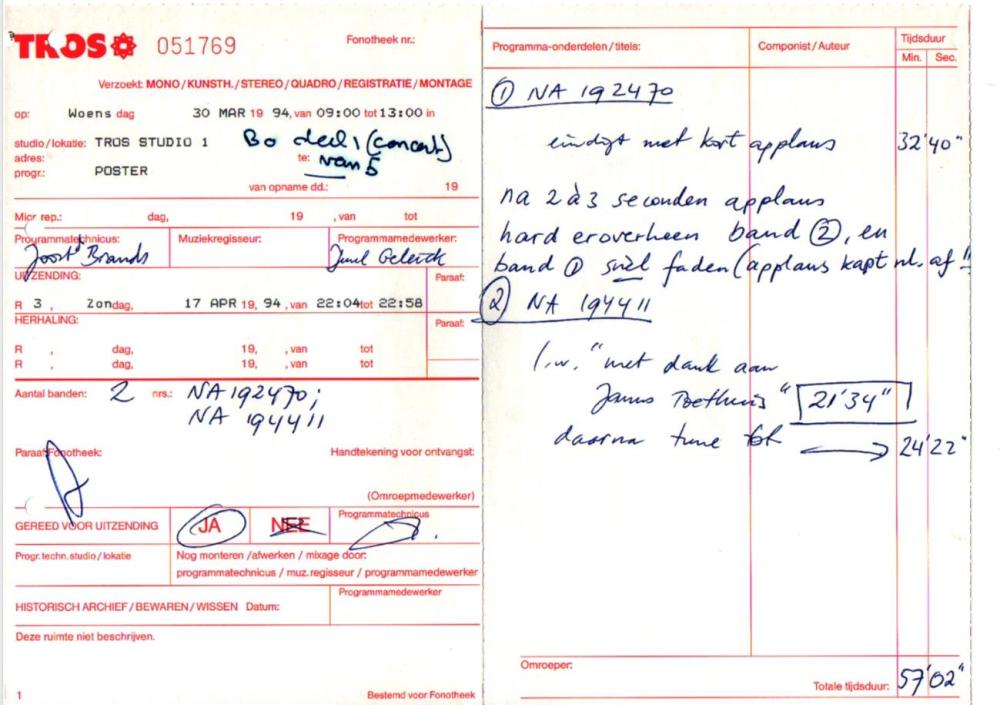 TROS 051769
Fonotheek nr.:
Verzoekt: MONO/KUNSTH./STEREO/QUADRO/REGISTRATIE/MONTAGE
op: Woens dag 30 MAR 19 94, van 09:00 tot 13:00 in
studio/lokatie: TROS STUDIO 1 Bo deel 1 (concert)
adres: te: van 5
progr.: POSTER
van opname dd.: 19
Micr rep.: dag, 19 , van tot
Programmatechnicus: Muziekregisseur: Programmamedewerker:
Joost Brands
UITZENDING: Paraaf:
R 3, Zondag, 17 APR 19, 94, van 22:04 tot 22:58
HERHALING: Paraaf:
R , dag, 19, , van tot
R , dag, 19, , van tot
Aantal banden: 2 nrs.: NA 192470;
NA 194411
Paraaf Fonotheek: Handtekening voor ontvangst:
(Omroepmedewerker)
GEREED VOOR UITZENDING JA NEE Programmatechnicus
Progr.techn.studio/lokatie Nog monteren/afwerken/mixage door:
programmatechnicus/muz.regisseur/programmamedewerker
HISTORISCH ARCHIEF/BEWAREN/WISSEN Datum: Programmamedewerker
Deze ruimte niet beschrijven.
1 Bestemd voor Fonotheek
Programma-onderdelen/titels: Componist/Auteur Tijdsduur
Min. Sec.
① NA 192470
eindigt met kort applaus 32'40"
na 2 à 3 seconden applaus
hard eroverheen band ②, en
band ① snel faden (applaus kapt nl. af!!
② NA 194411
l.w. "met dank aan
21'34"
daarna tune tot → 24'22"
Omroeper:
Totale tijdsduur: 57'02"